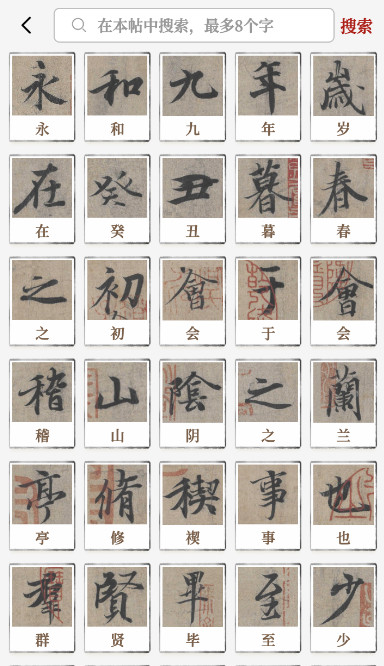 在本帖中搜索，最多8个字 搜索
永 和 九 年 歲
永 和 九 年 岁
在 癸 丑 暮 春
在 癸 丑 暮 春
之 初 會 于 會
之 初 会 于 会
稽 山 陰 之 蘭
稽 山 阴 之 兰
亭 脩 稧 事 也
亭 修 禊 事 也
羣 賢 畢 至 少
群 贤 毕 至 少